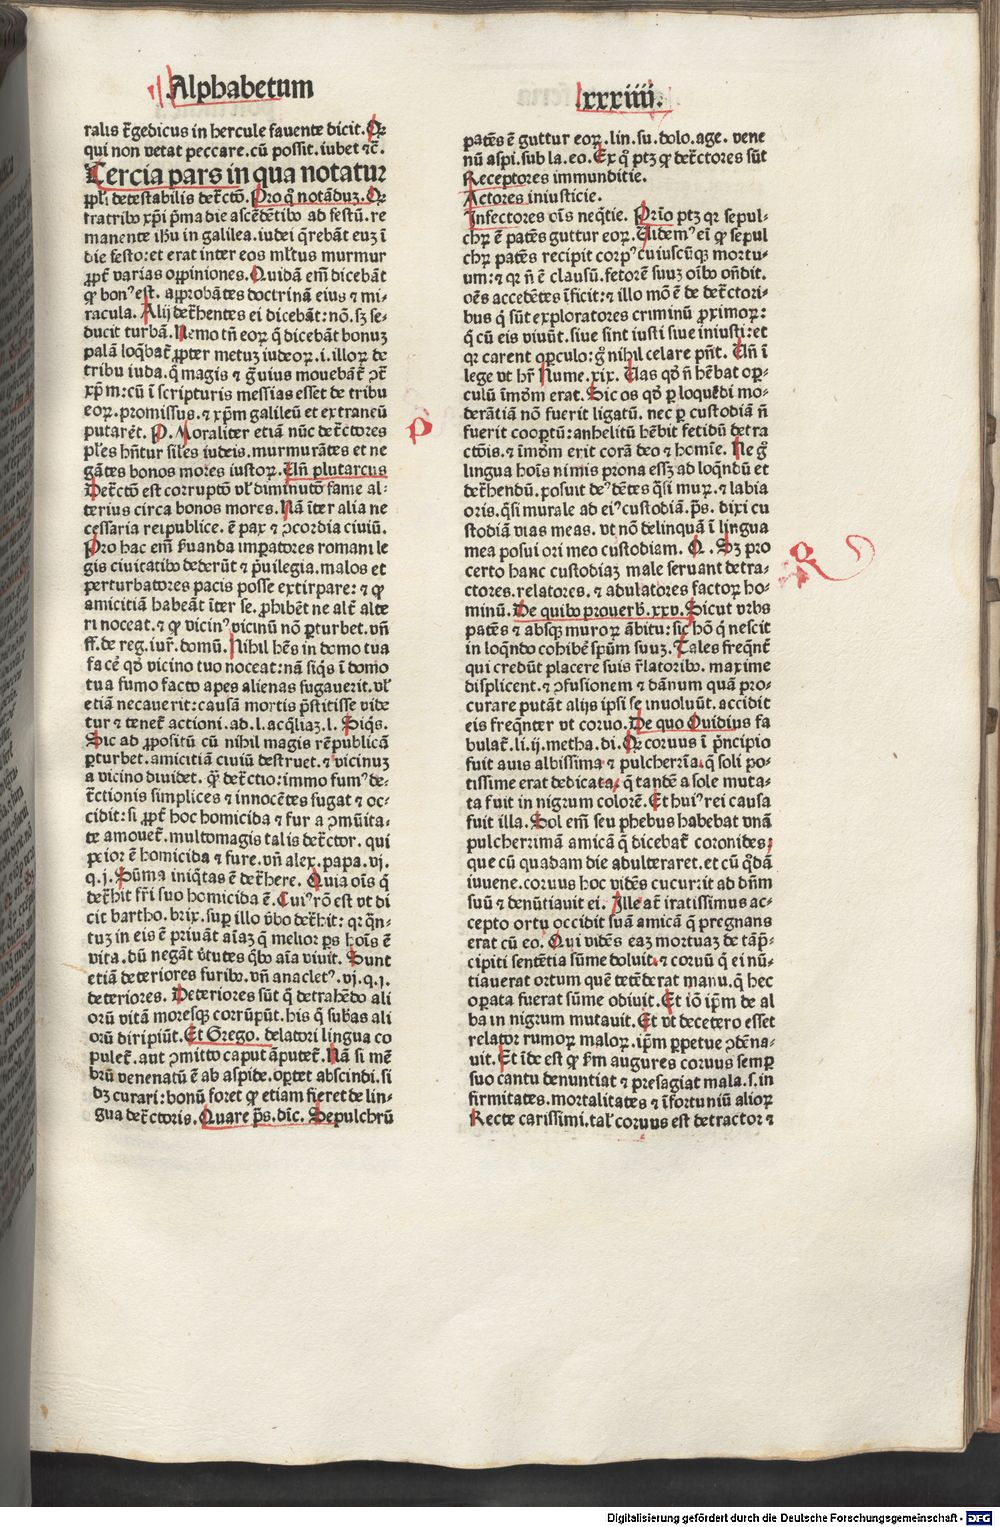 Alphabetum
lxxxiiii.
ralis t̄gedicus in hercule fauente dicit. Qꝛ
qui non vetat peccare. cū possit. iubet ⁊c̄.
Tercia pars in qua notatur
ꝓpl̄i detestabilis detc̄tō. Pro qͦ notādūꝫ. Qꝛ
tratribꝰ xp̄i p̄ma die ascēdētibꝰ ad festū. re
manente ih̄u in galilea. iudei q̄rebāt euꝫ ī
die festo: et erat inter eos ml̓tus murmur
ꝓpt̄ varias oppiniones. Quidā em̄ dicebāt
ꝙ bonꝰ est. approbātes doctrinā eius ⁊ mi-
racula. Alij det̓hentes ei dicebāt: nō. sꝫ se-
ducit turbā. Nemo tn̄ eoꝝ q̄ dicebāt bonuꝫ
palā loq̄bat̄ ꝓpter metuꝫ iudeoꝝ. i. illoꝝ de
tribu iuda. q̄ magis ⁊ g̓uius mouebāt̄ ꝯt̄
xp̄m: cū ī scripturis messias esset de tribu
eoꝝ. promissus. ⁊ xp̄m galileū et extraneū
putarēt. P. Moraliter etiā nūc detc̄tores
pl̓es hn̄tur sil̓es iudeis. murmurātes et ne
gātes bonos mores iustoꝝ. Un̄ plutarcus
Detc̄tō est corruptō vl̓ diminutō fame al-
terius circa bonos mores. Nā īter alia ne
cessaria reipublice. ē pax ⁊ ꝯcordia ciuiū.
Pro hac em̄ s̓uanda imꝑatores romani le
gis ciuitatibꝰ dederūt ⁊ p̓uilegia. malos et
ꝑturbatores pacis posse extirpare: ⁊ ꝙ
amicitiā habeāt īter se. ꝓhibēt ne alt̄ alte
ri noceat. ⁊ ꝙ vicinꝰ vicinū nō ꝑturbet. vn̄
ff. de reg. iur̄. domū. Nihil hēs in domo tua
facē qd̓ vicino tuo noceat: nā siq̄s ī domo
tua fumo facto apes alienas fugauerit. vl̓
etiā necauerit: causam mortis p̄stitisse vide
tur ⁊ tenet̄ actioni. ad. l. acq̄liaꝫ. l. Siq̄s.
Sic ad ꝓpositū cū nihil magis rēpublicā
ꝑturbet. amicitiā ciuiū destruet. ⁊ vicinuꝫ
a vicino diuidet. qͣ detc̄tio: immo fumꝰ de-
tc̄tionis simplices ⁊ innocētes fugat ⁊ oc-
cidit: si ꝓpt̄ hoc homicida ⁊ fur a ꝯmūita-
te amouet̄. multomagis talis detc̄tor. qui
peior ē homicida ⁊ fure. vn̄ alex. papa. vj.
q. j. Sūma iniq̄tas ē det̓here. Quia oīs q̄
det̓hit fr̄i suo homicida ē. Cuiꝰ rō est vt di
cit bartho. brix. suꝑ illo v̓bo det̓hit: qꝛ q̄n-
tuꝫ in eis ē priuāt aīaꝫ q̄ melior ꝑs hoīs ē
vita. dū negāt v̓tutes qͥbꝰ aīa viuit. Sunt
etiā deteriores furibꝰ. vn̄ anacletꝰ. vj. q. j.
deteriores. Deteriores sūt q̄ detrahēdo ali
orū vitā moresqꝫ corrūpūt. his q̄ subās ali
orū diripiūt. Et Grego. delatori lingua co
pulet̄. aut ꝯmitto caput āputet̄. Nā si mē
brū venenatū ē ab aspide. oꝑtet abscindi. si
dꝫ curari: bonū foret ꝙ etiam fieret de lin-
gua detc̄toris. Quare p̄s. dīc. Sepulchrū
patēs ē guttur eoꝝ. lin. su. dolo. age. vene
nū aspi. sub la. eo. Ex qͦ ptꝫ ꝙ detc̄tores sūt
Receptores immunditie.
Actores iniusticie.
Infectores oīs neq̄tie. Prīo ptꝫ qꝛ sepul-
chꝝ ē patēs guttur eoꝝ. Uidemꝰ eī ꝙ sepul
chꝝ patēs recipit corpꝰ cuiuscūqꝫ mortu-
um: ⁊ qꝛ n̄ ē clausū. fetorē suuꝫ oībꝰ on̄dit.
oēs accedētes īficit: ⁊ illo mō ē de detc̄tori-
bus q̄ sūt exploratores criminū ꝓximoꝝ:
q̄ cū eis viuūt. siue sint iusti siue iniusti: et
qꝛ carent oꝑculo: g̊ nihil celare pn̄t. Un̄ ī
lege vt hr̄ Nume. xix. Uas qd̓ n̄ hēbat oꝑ-
culū īmōm erat. Sic os qd̓ ꝑ loquēdi mo-
derātiā nō fuerit ligatū. nec ꝑ custodiā n̄
fuerit cooꝑtū: anhelitū hēbit fetidū detra
ctōis. ⁊ īmōm erit corā deo ⁊ homīe. Ne g̊
lingua hoīs nimis prona essꝫ ad loq̄ndū et
det̓hendū. posuit deꝰ dētes q̄si muꝝ. ⁊ labia
oris. q̄si murale ad eiꝰ custodiā. p̄s. dixi cu
stodiā vias meas. vt nō delinquā ī lingua
mea posui ori meo custodiam. Q. Sꝫ pro
certo hanc custodiaꝫ male seruant detra-
ctores. relatores. ⁊ adulatores factoꝝ ho-
minū. De quibꝰ prouerb̓. xxv. Sicut vrbs
patēs ⁊ absqꝫ muroꝝ ābitu: sic hō q̄ nescit
in loq̄ndo cohibē sp̄um suuꝫ. Tales freq̄nt̄
qui credūt placere suis r̓latoribꝰ. maxime
displicent. ⁊ ꝯfusionem ⁊ dānum quā pro-
curare putāt alijs ip̄i se inuoluūt. accidit
eis freq̄nter vt coruo. De quo Ouidius fa
bulat̄. li. ij. metha. di. Qꝛ coruus ī p̓ncipio
fuit auis albissima ⁊ pulcherr̄īa. q̄ soli po-
tissime erat dedicata, q̄ tandē a sole muta-
ta fuit in nigrum colorē. Et huiꝰ rei causa
fuit illa. Sol em̄ seu phebus habebat vnā
pulcherrimā amicā q̄ dicebat̄ coronides,
que cū quadam die adulteraret. et cū qͦdā
iuuene. coruus hoc vidēs cucurrit ad dn̄m
suū ⁊ denūtiauit ei. Ille at̄ iratissimus ac-
cepto ortu occidit suā amicā q̄ pregnans
erat cū eo. Qui vidēs eaꝫ mortuaꝫ de tāp̓-
cipiti sentētia sūme doluit. ⁊ coruū q̄ ei nū-
tiauerat ortum quē tetēderat manu. q̄ hec
oꝑata fuerat sūme odiuit. Et iō ip̄m de al
ba in nigrum mutauit. Et vt decetero esset
relator rumoꝝ maloꝝ. ip̄m ꝑpetue ꝯdēna-
uit. Et īde est ꝙ s̓m augures coruus semꝑ
suo cantu denuntiat ⁊ presagiat mala. s. in
firmitates. mortalitates ⁊ īfortuniū alioꝝ
Recte carissimi. tal̓ coruus est detractor ⁊
P
Q
Digitalisierung gefördert durch die Deutsche Forschungsgemeinschaft - DFG